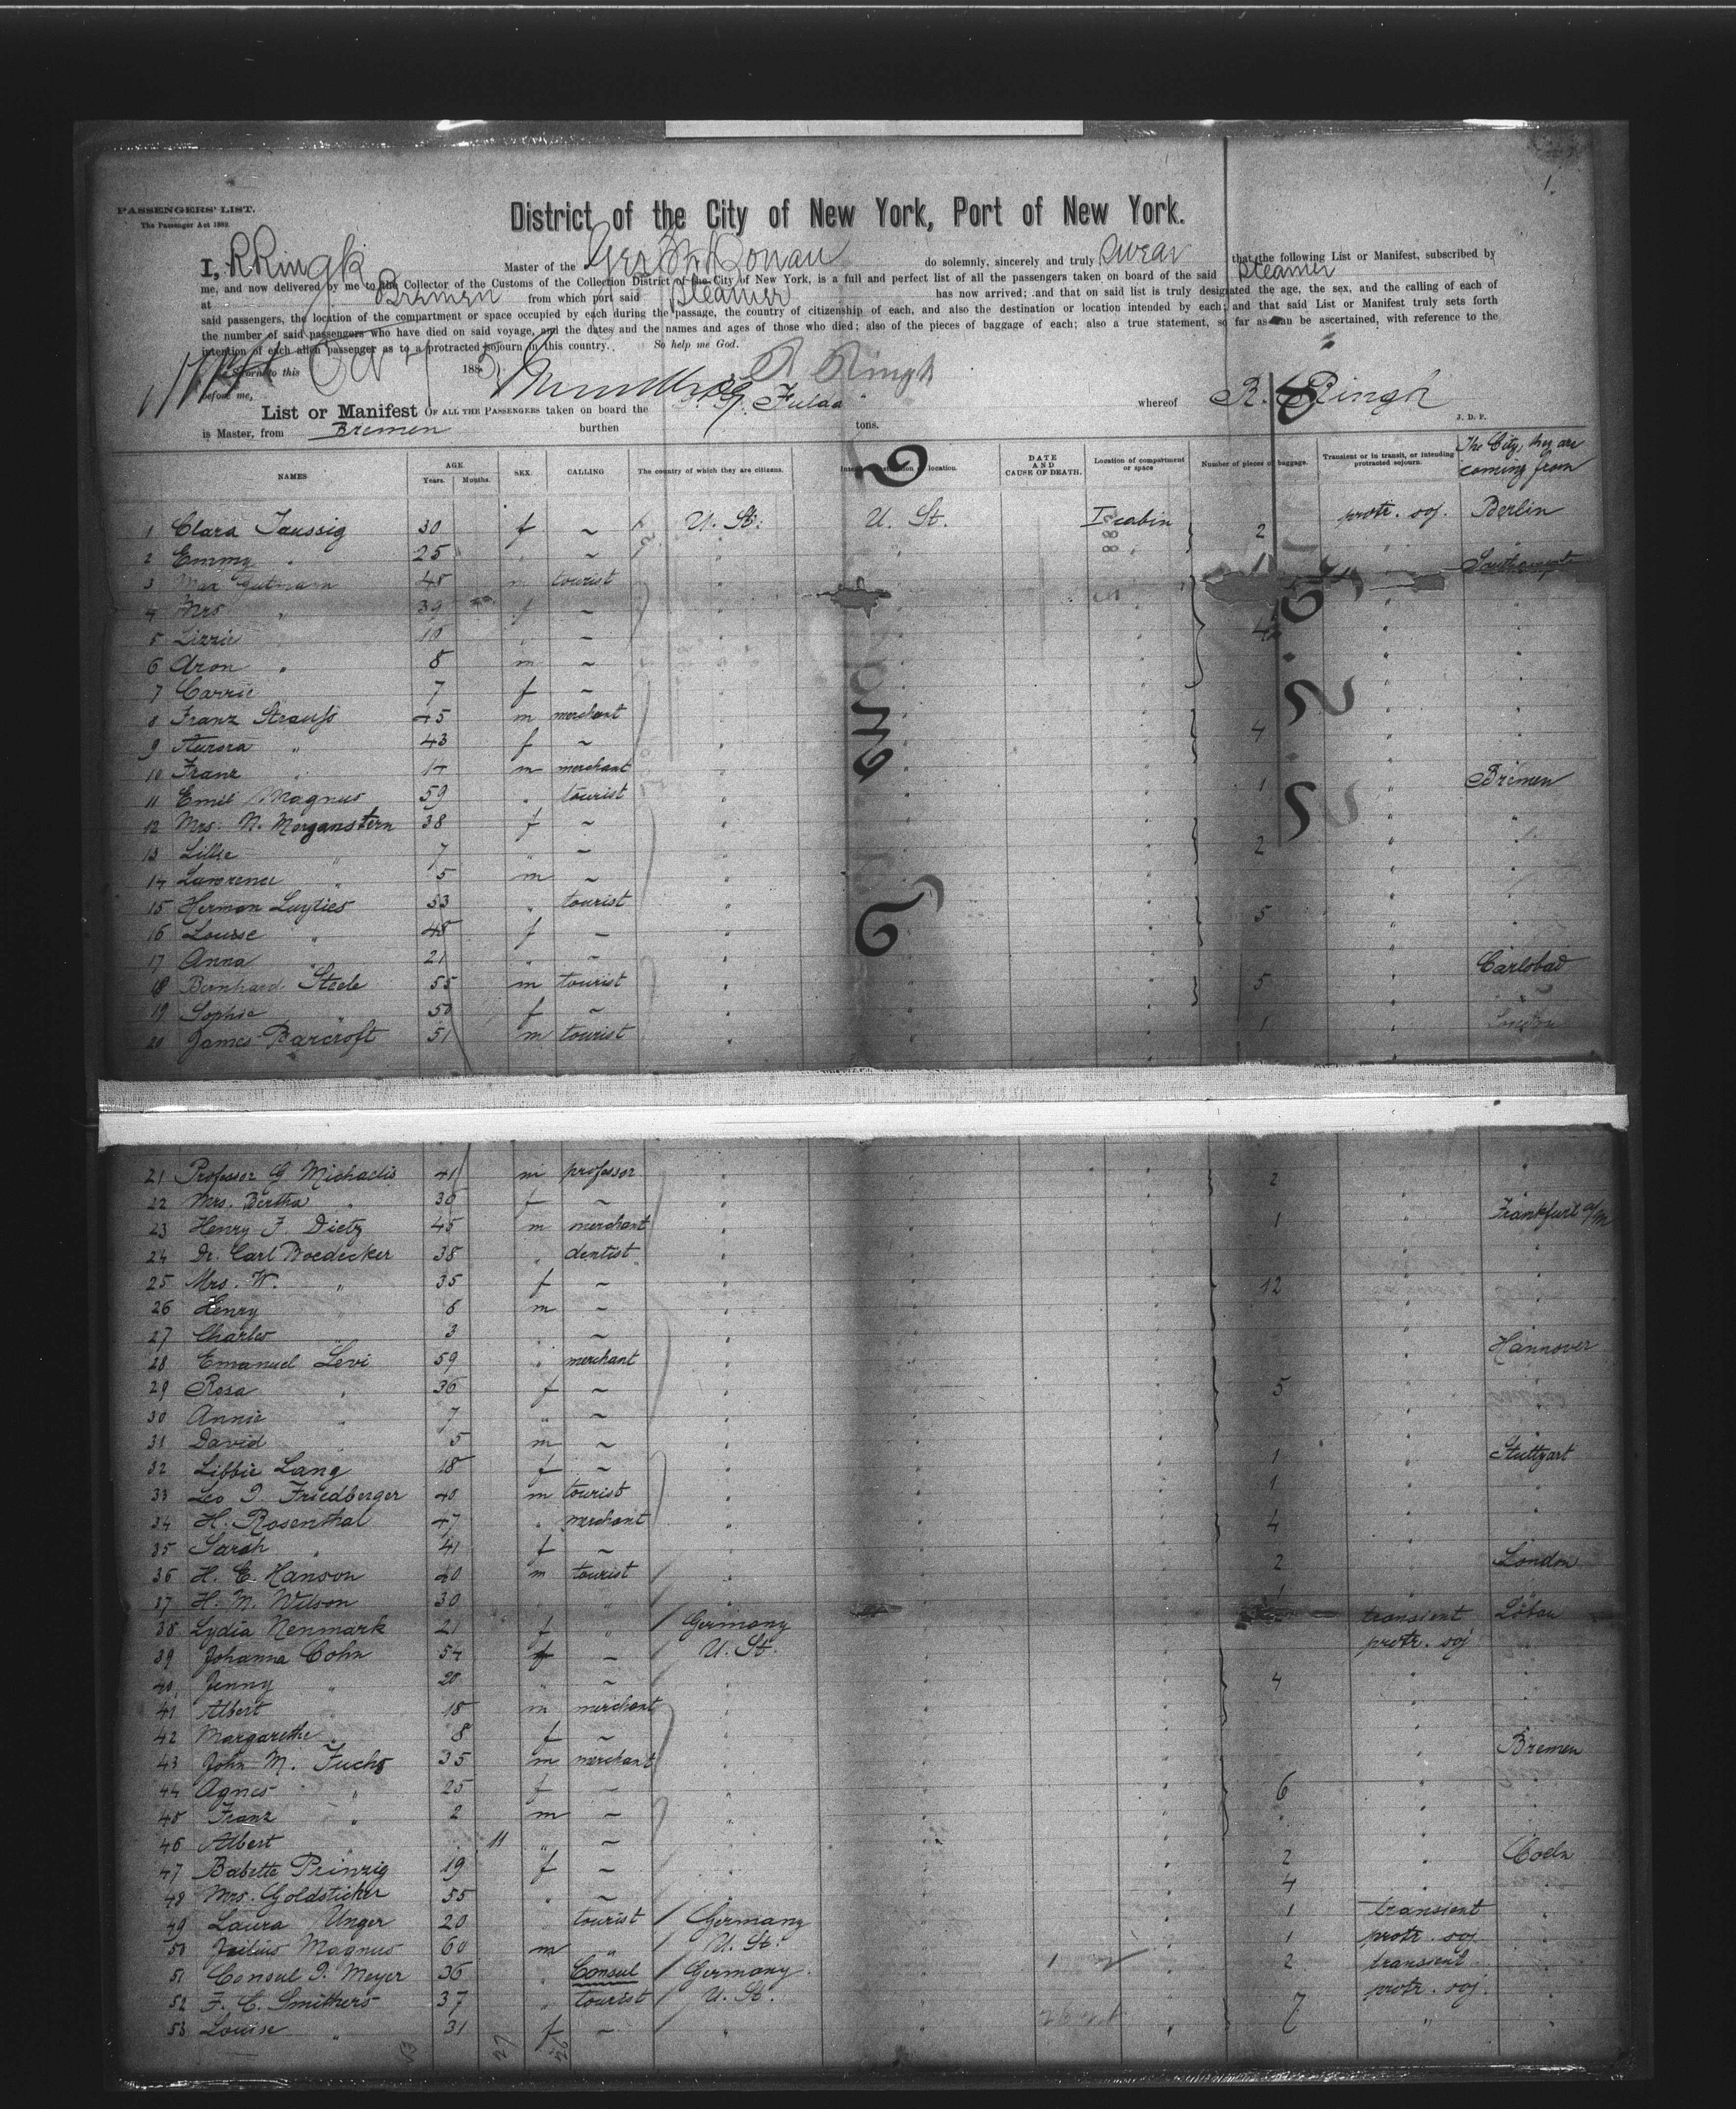 1.
PASSENGERS' LIST.
The Passenger Act 1882.
District of the City of New York, Port of New York.
I, R Ringk Master of the Ger Str Donau do solemnly, sincerely and truly swear that the following List or Manifest, subscribed by
me, and now delivered by me to the Collector of the Customs of the Collection District of the City of New York, is a full and perfect list of all the passengers taken on board of the said Steamer
at Bremen from which port said Steamer has now arrived; and that on said list is truly designated the age, the sex, and the calling of each of
said passengers, the location of the compartment or space occupied by each during the passage, the country of citizenship of each, and also the destination or location intended by each; and that said List or Manifest truly sets forth
the number of said passengers who have died on said voyage, and the dates and the names and ages of those who died; also of the pieces of baggage of each; also a true statement, so far as can be ascertained, with reference to the
intention of each alien passenger as to a protracted sojourn in this country. So help me God.
Sworn to this Oct 188 R Ringk
before me,
List or Manifest OF ALL THE PASSENGERS taken on board the S.S. "Fulda" whereof R. Ringk
J. D. P.
is Master, from Bremen burthen tons.
NAMES AGE Years. Months. SEX. CALLING The country of which they are citizens. Intended destination or location DATE AND CAUSE OF DEATH. Location of compartment or space Number of pieces of baggage. Transient or in transit, or intending protracted sojourn. The City, they are coming from
1 Clara Taussig 30 f ~ U. St. U. St. I cabin 2 protr. soj. Berlin
2 Emmy " 25 " ~ " " "
3 Max Gutmann 45 m tourist " Southampt
4 Mrs " 39 f ~ "
5 Lizzie 10 " ~ " 4
6 Aron " 8 m ~ "
7 Carrie " 7 f ~ "
8 Franz Strauss 45 m merchant "
9 Aurora " 43 f ~ " 4
10 Franz " 17 m merchant "
11 Emil Magnus 59 " tourist " 1 Bremen
12 Mrs. N. Morganstern 38 f ~ " "
13 Lillie " 7 " ~ " 2
14 Lawrence " 5 m ~ "
15 Herman Luyties 53 " tourist " 5
16 Louise " 48 f ~ "
17 Anna " 21 " ~ "
18 Bernhard Steele 55 m tourist " 5 Carlsbad
19 Sophie " 50 f ~ "
20 James Barcroft 51 m tourist " 1 London
21 Professor G Michaelis 41 m professor " 2 "
22 Mrs. Bertha " 30 f ~ "
23 Henry F Dietz 45 m merchant " 1 Frankfurt a/M
24 Dr. Carl Boedecker 38 " dentist "
25 Mrs. W. " 35 f ~ " 12
26 Henry " 6 m ~ "
27 Charles " 3 " ~ "
28 Emanuel Levi 59 " merchant " Hannover
29 Rosa " 36 f ~ " 5
30 Annie " 7 " ~ "
31 David " 5 m ~ "
32 Libbie Lang 18 f ~ " 1 Stuttgart
33 Leo J. Friedberger 40 m tourist " 1
34 H. Rosenthal 47 " merchant " 4
35 Sarah " 41 f ~ "
36 H. E. Hanson 40 m tourist " 2 London
37 H. M. Wilson 30 " " " 1
38 Lydia Nenmark 21 f " Germany transient Löbau
39 Johanna Cohn 54 f ~ U. St. protr. soj
40 Jenny " 20 " ~ " 4
41 Albert " 18 m merchant "
42 Margarethe " 8 f ~ "
43 John M. Fuchs 35 m merchant " Bremen
44 Agnes " 25 f ~ " 6
45 Franz " 2 m ~ "
46 Albert " 11 " ~
47 Babette Prinzig 19 f ~ " 2 Coeln
48 Mrs. Goldsticker 55 " ~ " 4
49 Laura Unger 20 " tourist Germany 1 transient
50 Julius Magnus 60 m " U. St. 1 protr. soj
51 Consul J. Meyer 36 " Consul Germany 2 transient
52 F. C. Smithers 37 " tourist U. St. 7 protr. soj.
53 Louise " 31 f ~ " "
27 26